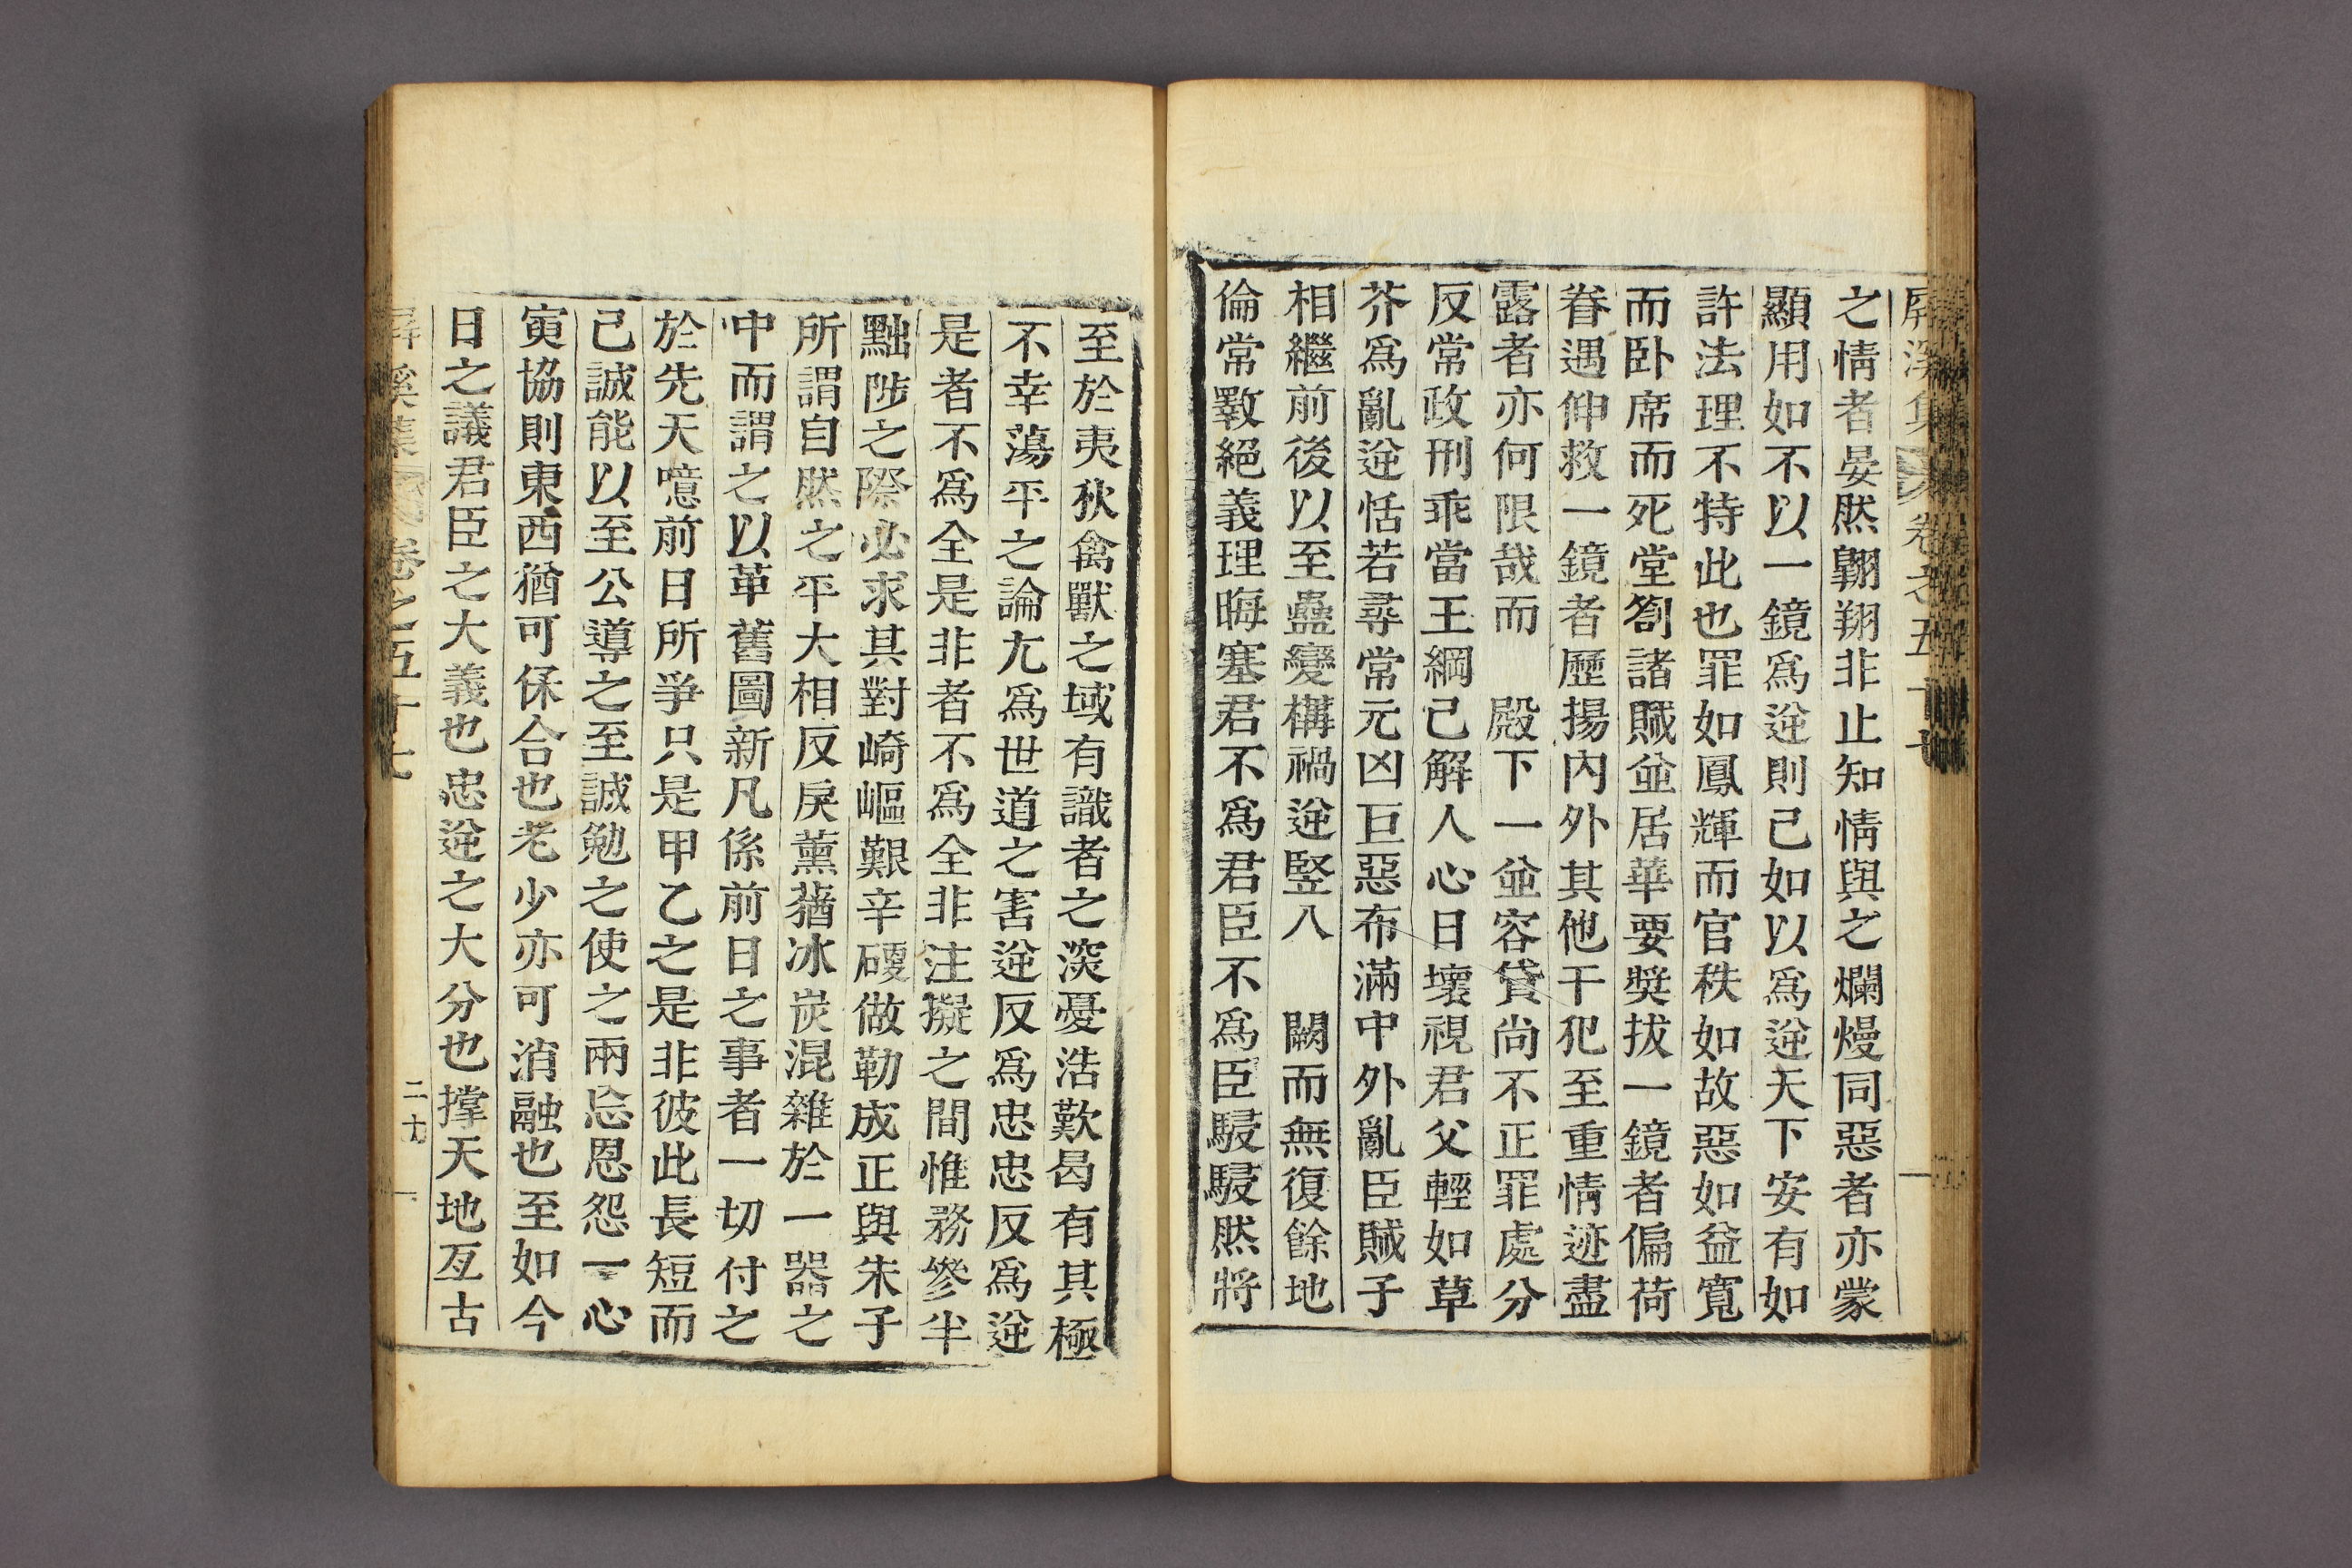 屛溪集 卷之五十七
之情者晏然翺翔非止知情與之爛熳同惡者亦蒙
顯用如不以一鏡爲逆則已如以爲逆天下安有如
許法理不特此也罪如鳳輝而官秩如故惡如益寬
而卧席而死堂劄諸賊並居華要奬拔一鏡者偏荷
眷遇伸救一鏡者歷揚內外其他干犯至重情迹盡
露者亦何限哉而 殿下一並容貸尚不正罪處分
反常政刑乖當王綱已解人心日壞視君父輕如草
芥爲亂逆恬若尋常元凶巨惡布滿中外亂臣賊子
相繼前後以至蠱變構禍逆竪八 闕而無復餘地
倫常斁絕義理晦塞君不爲君臣不爲臣駸駸然將
至於夷狄禽獸之域有識者之深憂浩歎曷有其極
不幸蕩平之論尤爲世道之害逆反爲忠忠反爲逆
是者不爲全是非者不爲全非注擬之間惟務參半
黜陟之際必求其對崎嶇艱辛硬做勒成正與朱子
所謂自然之平大相反戾薰蕕冰炭混雜於一器之
中而謂之以革舊圖新凡係前日之事者一切付之
於先天噫前日所爭只是甲乙之是非彼此長短而
己誠能以至公導之至誠勉之使之兩忘恩怨一心
寅協則東西猶可保合也老少亦可消融也至如今
日之議君臣之大義也忠逆之大分也撑天地亙古
屛溪集 卷之五十七